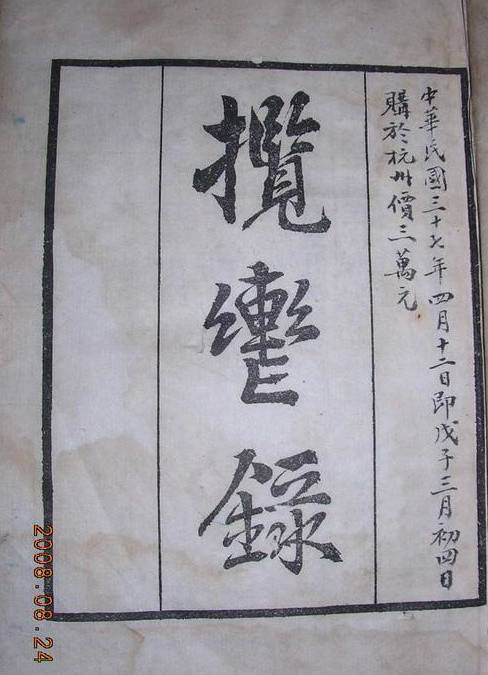 中華民國三十七年四月十二日即戊子三月初四日
購於杭州價三萬元
攬轡錄
2008.08.24